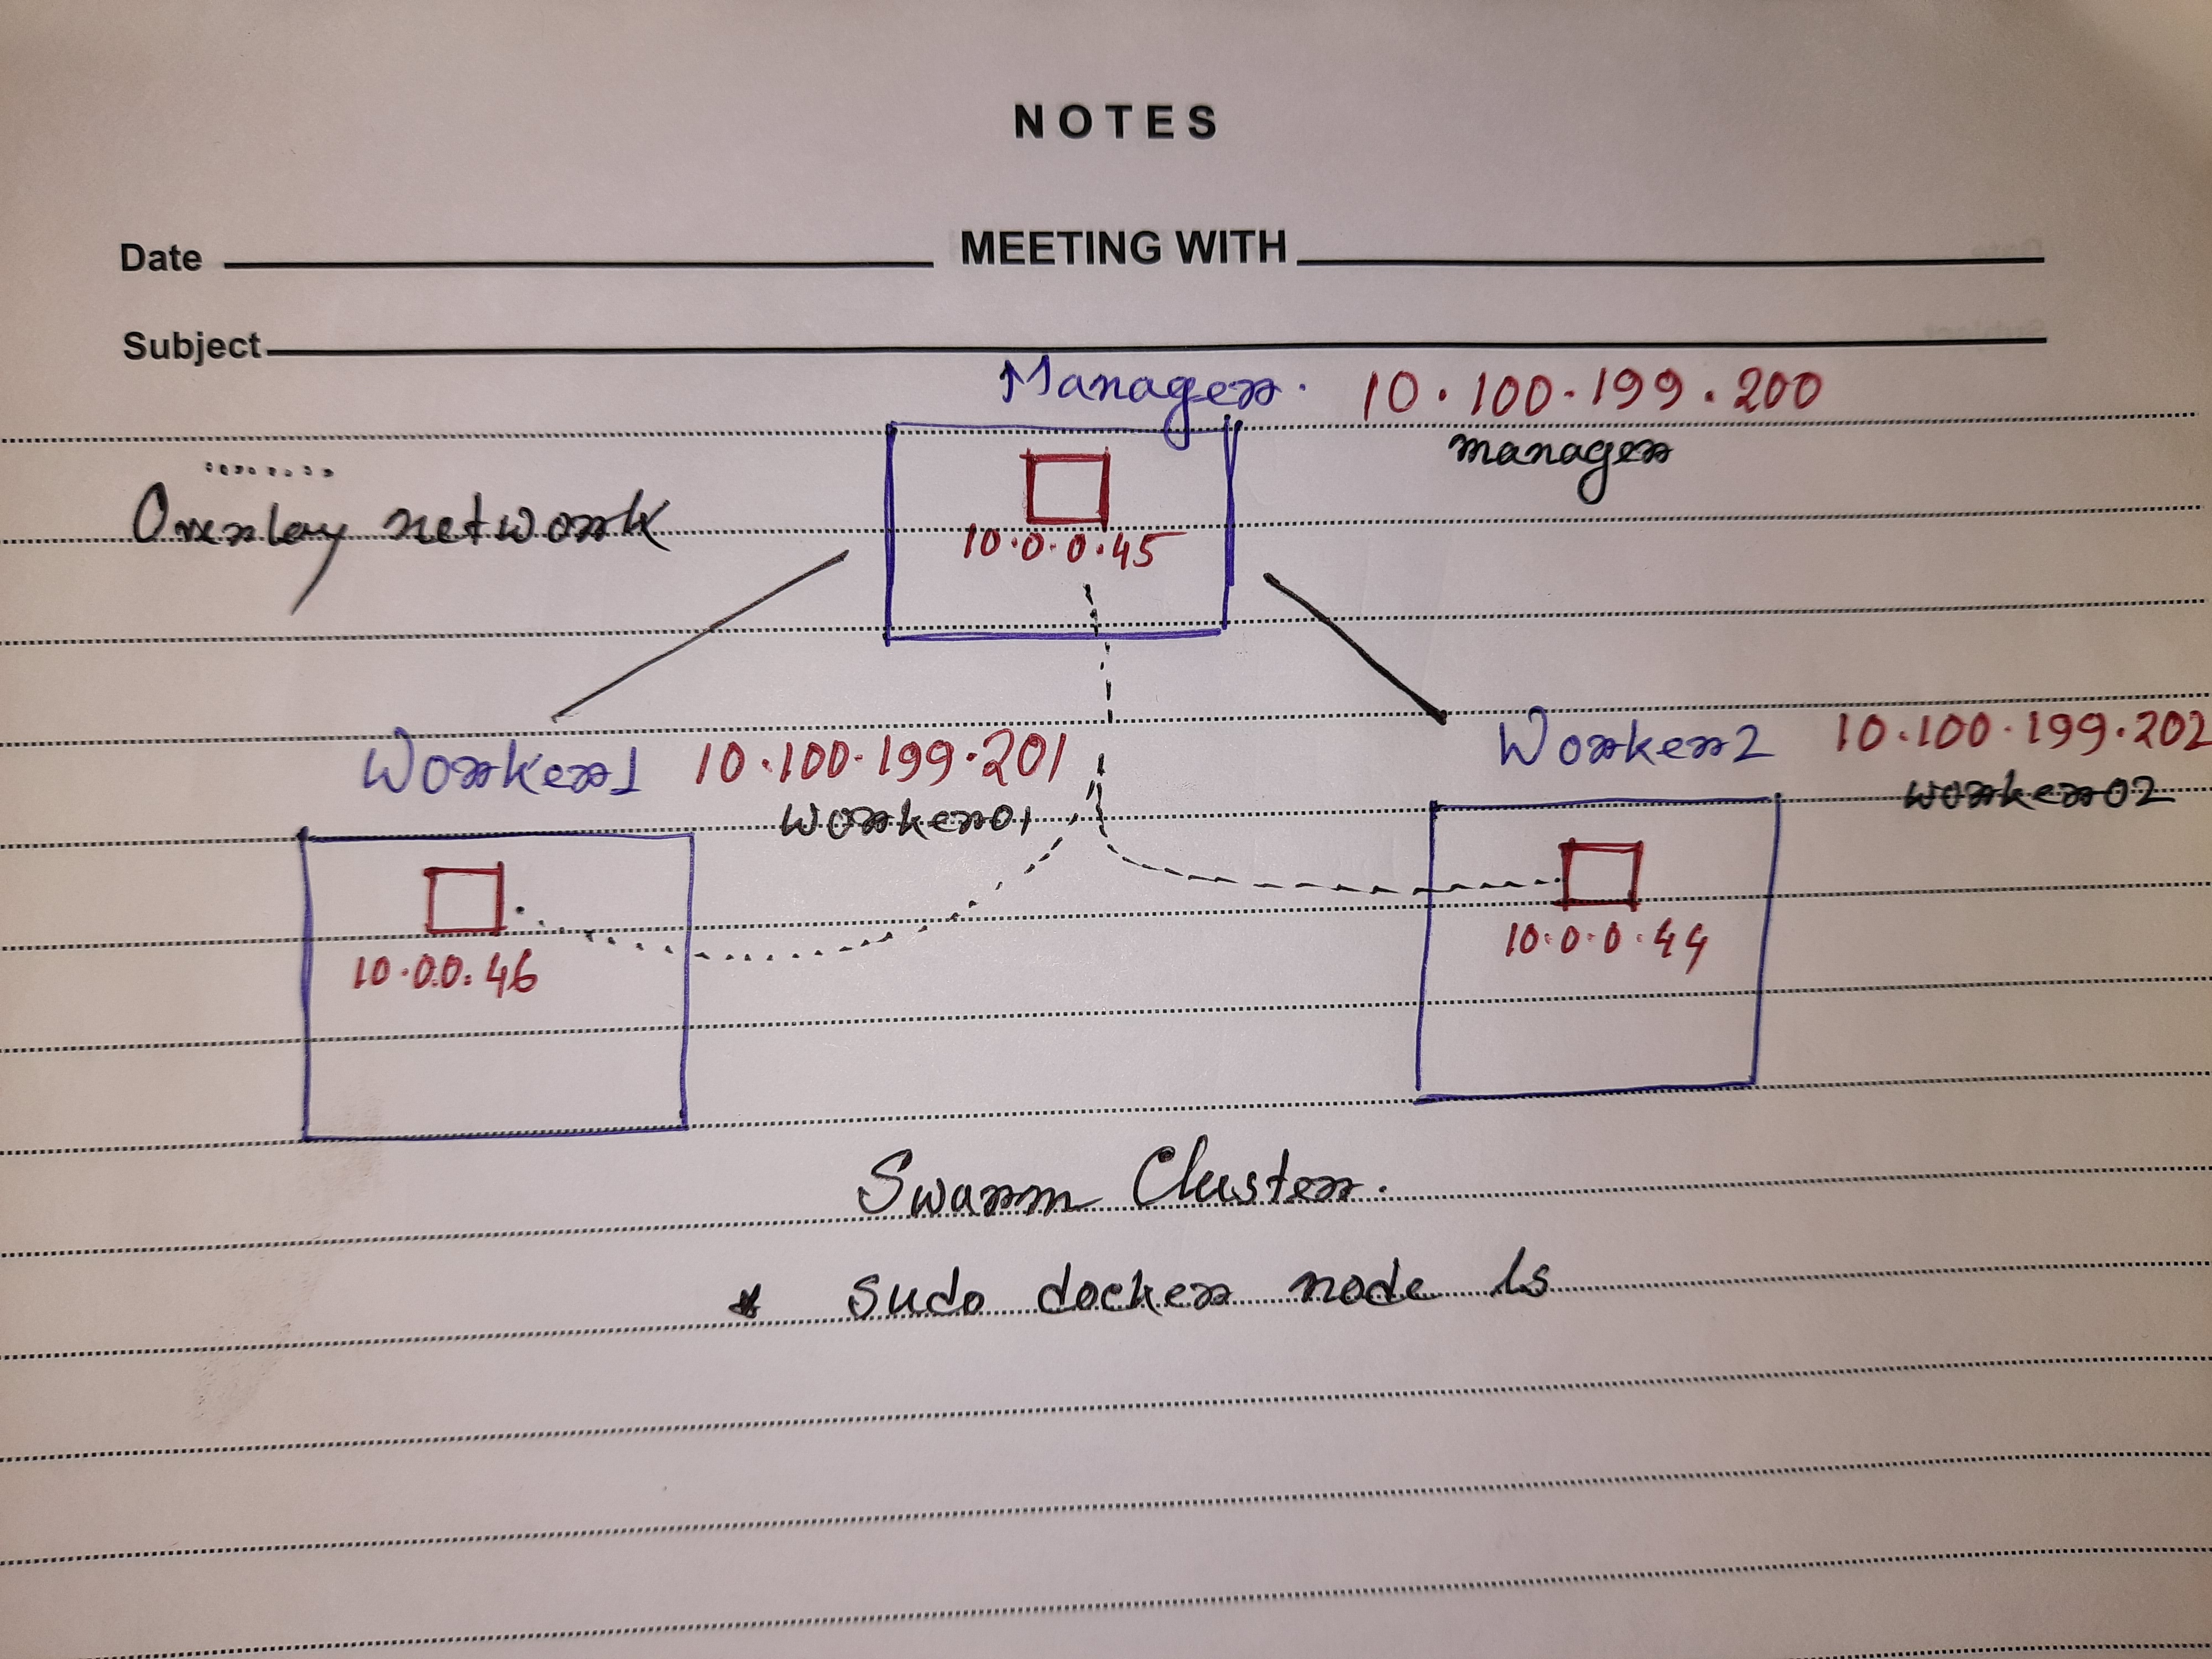 NOTES
Date MEETING WITH
Subject
Manager. 10.100.199.200
manager
Overlay network
10.0.0.45
Worker1 10.100.199.201
worker01
Worker2 10.100.199.202
worker02
10.0.0.46
10.0.0.44
Swarm Cluster.
* sudo docker node ls